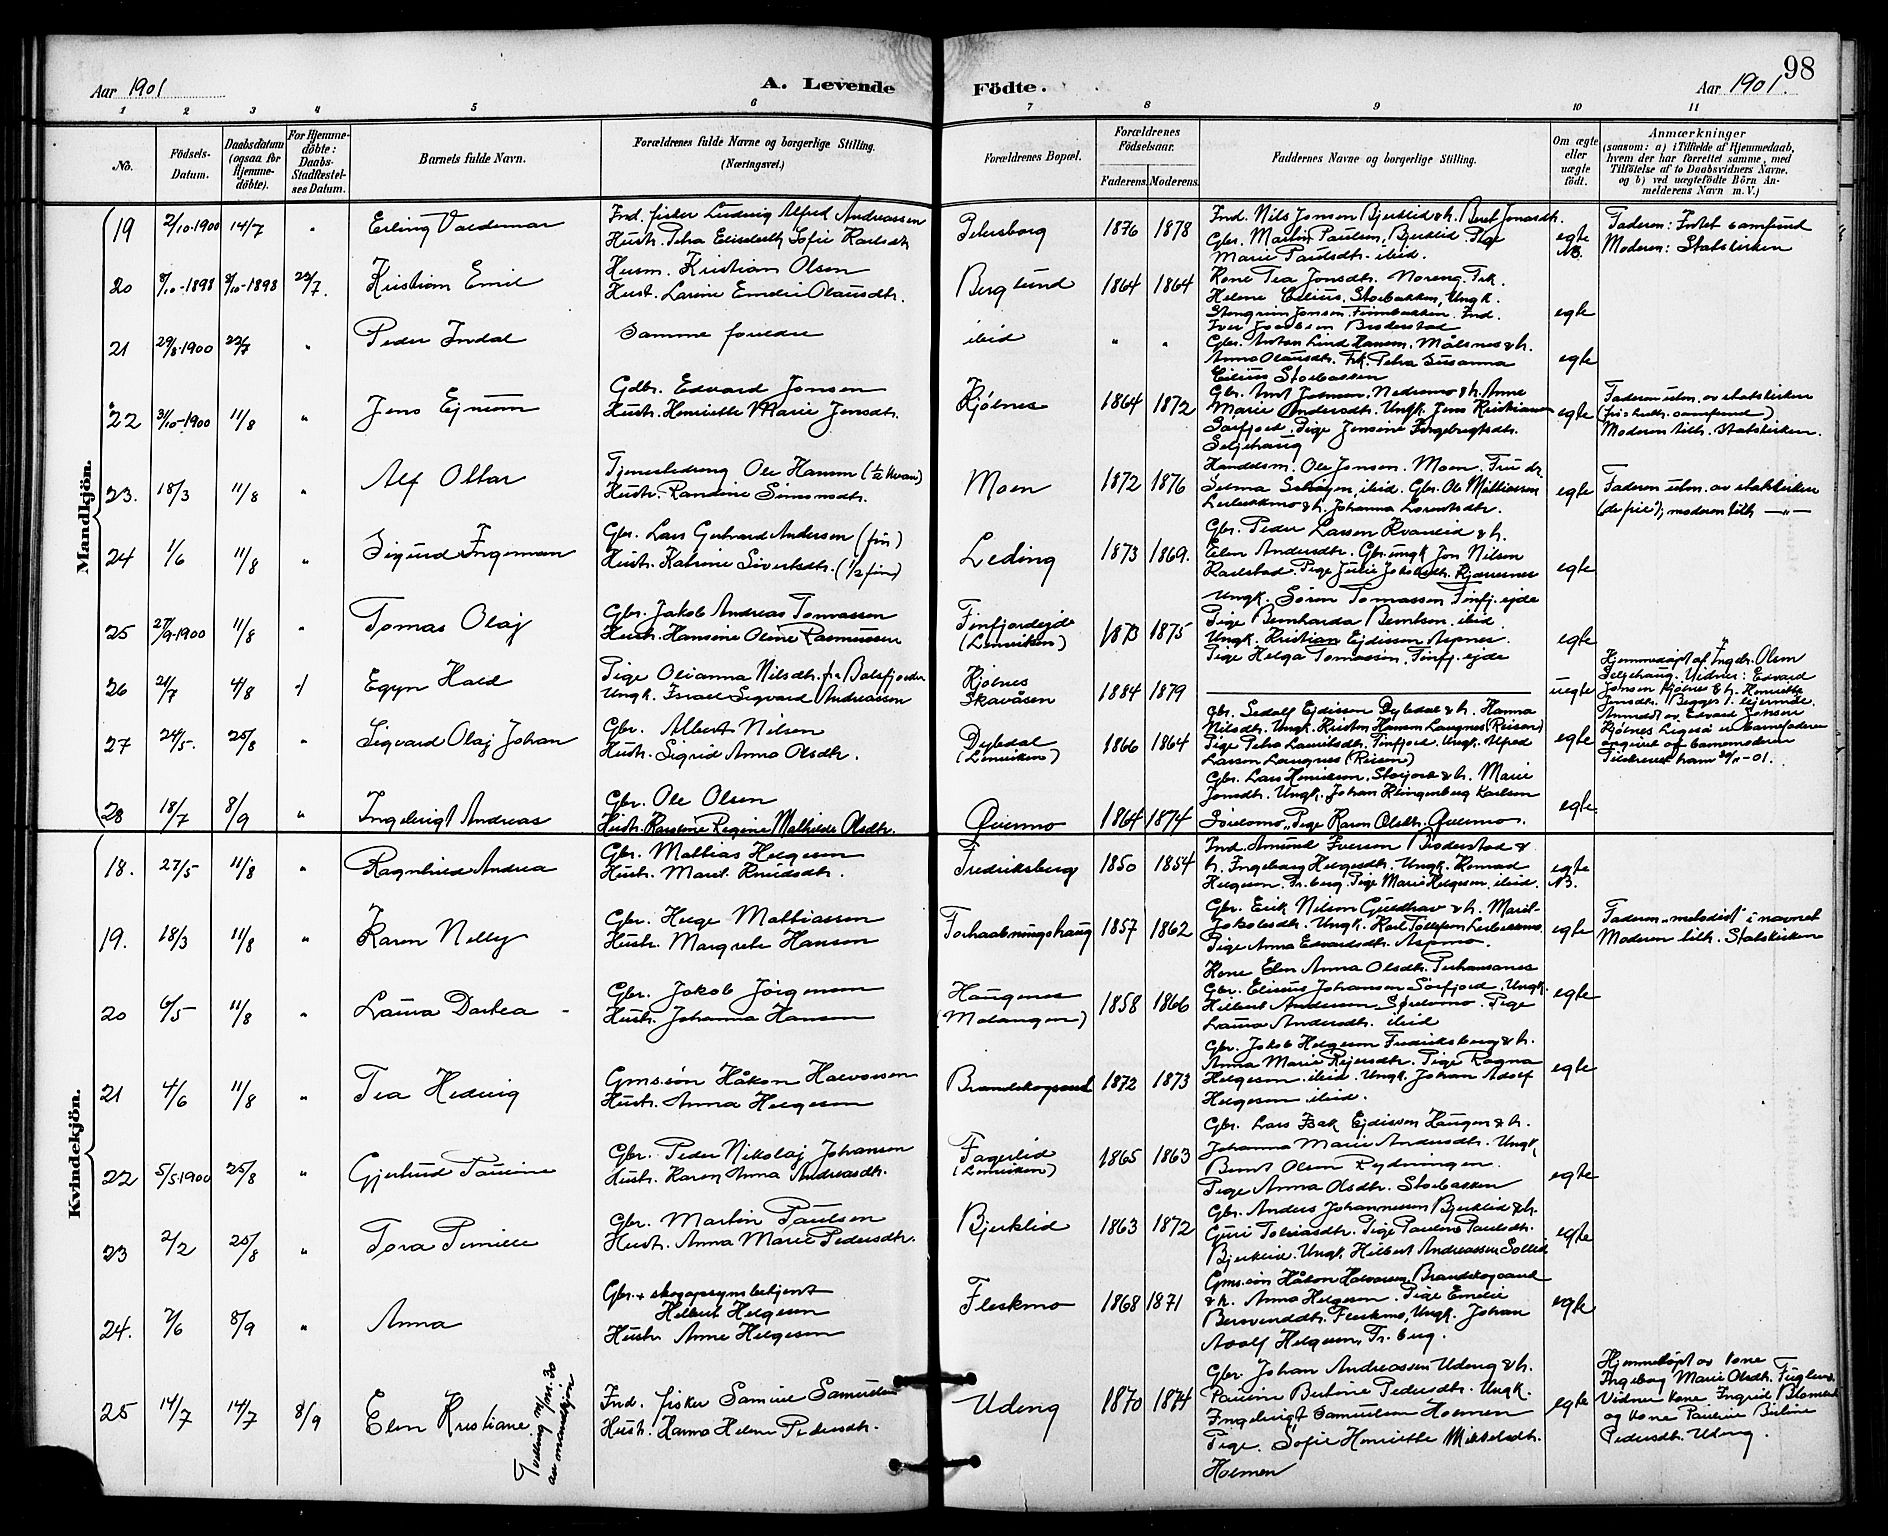 Aar 1901
A. Levende
Födte.
Aar 1901.
98
1 2 3 4 5 6 7 8 9 10 11
No.
Födsels-Datum.
Daabsdatum (ogsaa for Hjemmedöbte).
For Hjemmedöbte: Daabs-Stadfæstelses Datum.
Barnets fulde Navn.
Forældrenes fulde Navne og borgerlige Stilling. (Næringsvei.)
Forældrenes Bopæl.
Forældrenes Födselsaar.
Faderens. Moderens.
Faddernes Navne og borgerlige Stilling.
Om ægte eller uægte født.
Anmærkninger
(saasom: a) i Tilfælde af Hjemmedaab, hvem der har forrettet samme, med Tilföielse af to Daabsvidners Navne, og b) ved uægtefödte Börn Anmelderens Navn m. V.)
Mandkjön.
19 2/10-1900 14/7 " Erling Valdemar
Ind. fisker Ludvig Alfred Andreassen
Hustr. Petra Elisabeth Sofie Karlsdtr
Petersborg 1876 1878
Ind. Nils Jonsen Bjerklid & h. Beret Jonasdtr.
Gbr. Martin Paulsen, Bjerklid. Pige
Marie Paulsdtr. ibid.
egte NB.
Faderen: Intet samfund
Moderen: Statskirken
20 9/10-1898 9/10-1898 22/7. Kristian Emil
Husm. Kristian Olsen
Hust. Larine Emelie Olausdtr.
Berglund 1864 1864
Kone Tea Jonsdtr. Moreng. Frk.
Helene Cilius, Storbakken, Ungk.
Stengrim Jonsen Finnbakken. Ind.
Iver Jacobsen Broderstad
egte
21 29/8-1900 22/7 " Peder Indal
Samme foreldre
ibid " "
Gbr. Anton Lind Hansen. Målsnes & h.
Anna Olausdtr. Frk. Petra Susanna
Cilius Storbakken
egte
22 31/10-1900 11/8 " Jens Ejnum
Gdbr. Edvard Jensen
Hustr. Henriette Marie Jensdtr.
Kjölnes 1864 1872
Marie Andersdtr. Ungk. Jens Kristiansen
Sörfjord. Pige Jensine Ingebrigtsdtr.
Seljehaug
egte
Faderen udm. av statskirken
Moderen tilh. Statskirken.
23. 18/3 11/8 " Alf Ottar
Tjenestedreng Ole Hansen (1/2 kvæn)
Hustr. Randine Simonsdtr.
Moen 1872 1876
Handelsm. Ole Jonsen. Moen. Fru dr.
Gbr. Ole Mathiassen
& h. Johanna Lorentsdtr.
egte
Faderen udm. av statskirken
(de frie); moderen tilh. —"—
24 1/6 11/8 " Sigurd Ingeman
Gbr. Lars Gerhard Andersen (fin)
Hustr. Katrine Sivertsdtr. (1/2 fin)
Leding 1873 1869.
Gbr. Peder Larsen Kvanlid & h.
Elen Andersdtr. Gbr. ungk. Jon Nilsen
Karlstad. Pige Julie Jakobsdtr. Kjærresnes
egte
25 27/9-1900 11/8 " Tomas Olaj
Gbr. Jakob Andreas Tomassen
Hustr. Hansine Oline Rasmussen
Finfjordejde
(Lenviken)
1873 1875
Ungk. Sören Tomassen Finfj.ejde
Pige Bernharda Berntsen. ibid.
Ungk. Kristian Ejdissen Aspnes.
Pige Helga Tomassen, Finfj. ejde
egte
26 21/7 4/8 Egyn Hald
Pige Olianna Nilsdtr. fra Balsfjorden
Ungk. Israel Sigvard Andreassen
Kjölnes
Skavåsen
1884 1879
uegte
Hjemmedöpt af Ingebr. Olsen
Seljehaug. Vidner: Edvard
Jensen Kjölnes & h. Henriette
Jensdtr.
Anmeldt av Edvard Jensen
Kjölnes
27 24/5. 25/8 " Sigvard Olaj Johan
Gbr. Albert Nilsen
Hustr. Sigrid Anna Olsdtr.
Dybedal
(Lenviken)
1866 1864
Gbr. Sedolf Ejdissen Dybedal & h. Hanna
Nilsdtr. Ungk. Kristen Hansen Langnes (Reisen)
Pige Petra Lauritsdtr. Finfjord. Ungk. Alfred
Larsen Langnes (Reisen)
egte
28 18/7 8/9 " Ingebrigt Andreas
Gbr. Ole Olsen
Hustr. Karoline Regine Mathilde Olsdtr.
Öiermo 1864 1874
Gbr. Lars Henriksen, & h. Marie
Jonsdtr. Ungk. Johan Klingenberg Karlsen
Pige Karen Olsdtr.
egte
Kvindekjön.
18. 27/5 11/8 " Ragnhild Andrea
Gbr. Mathias Helgesen
Hustr. Marit Knudsdtr.
Fredriksberg 1850 1854
Ind. Amund Iversen Broderstad &
h. Ingeborg Helgesdtr. Ungk. Konrad
Helgesen. Fr.berg. Pige Marie Helgesen, ibid.
egte NB.
19. 18/3 11/8 " Karen Nelly
Gbr. Helge Mathiassen
Hustr. Margrete Hansen
Forhaabningshaug 1857 1862
Gbr. Erik Nilsen Guldhav & h. Marit
Jakobsdtr. Ungk. Karl Tollefsen
Pige Anna Edvardsdtr. Aspmo.
egte
Faderen „metodist“ i navnet
Moderen tilh. Statskirken
20 6/5 11/8 " Laura Dortea
Gbr. Jakob Jörgensen
Hustr. Johanna Hansen
Haugenes
(Malangen)
1858 1866
Kone Elen Anna Olsdtr.
Gbr. Elisæus Johansen Sörfjord. Ungk.
Hilbert Andersen Pige
Laura Andersdtr. ibid
egte
21 4/6 11/8 " Tea Hedvig
Gmssön Håkon Halvorsen
Hustr. Anna Helgesen
Brandskogsand 1872 1873
Gbr. Jakob Helgesen Fredriksberg & h.
Anna Marie Rejersdtr. Pige Ragna
Helgesen. ibid. Ungk. Johan Adolf
Helgesen ibid.
egte
22 5/5-1900 25/8 " Gjertrud Pauline
Gbr. Peder Nikolaj Johansen
Hustr. Karen Anna Andreasdtr.
Fagerlid
(Lenviken)
1865 1863
Gbr. Lars Isak Ejdissen Haugen & h.
Johanna Marie Andersdtr. Ungk.
Bernt Olsen Rydningen.
Pige Anna Olsdtr. Storbakken
egte
23 2/2 25/8 " Tora Pernille
Gbr. Martin Paulsen
Hustr. Anna Marie Pedersdtr.
Bjerklid 1863 1872
Gbr. Anders Johannesen Bjerklid & h.
Guri Tobiasdtr. Pige Pauline Paulsdtr.
Bjerklid. Ungk. Hilbert Andreassen Sollid
egte
24. 7/6 8/9 " Anna
Gbr. + skogopsynsbetjent
Hilbert Helgesen
Hustr. Anne Helgesen
Fleskmo 1868 1871
Gmssön Håkon Halvorsen Brandskogsand
& h. Anna Helgesen. Pige Emelie
Bersvenddtr. Fleskmo, Ungk. Johan
Adolf Helgesen, Fr.berg.
egte
25 14/7 14/7 8/9 Elen Kristiane
Tvilling m/ nr. 30
av mandkjön
Ind. fisker Samuel Samuelsen
Hustr. Hanna Helene Pedersdtr.
Udeng 1870 1874
Gbr. Johan Andreassen Udeng & h.
Pauline Birtine Pedersdtr. Ungk.
Ingebrigt Samuelsen Holmen
Pige. Sofie Henriette Mikkelsdtr.
Holmen
egte
Hjemmedöpt av kone
Ingeborg Marie Olsdtr.
Vidner kone Ingrid
og kone Pauline Birtine
Pedersdtr. Udeng.